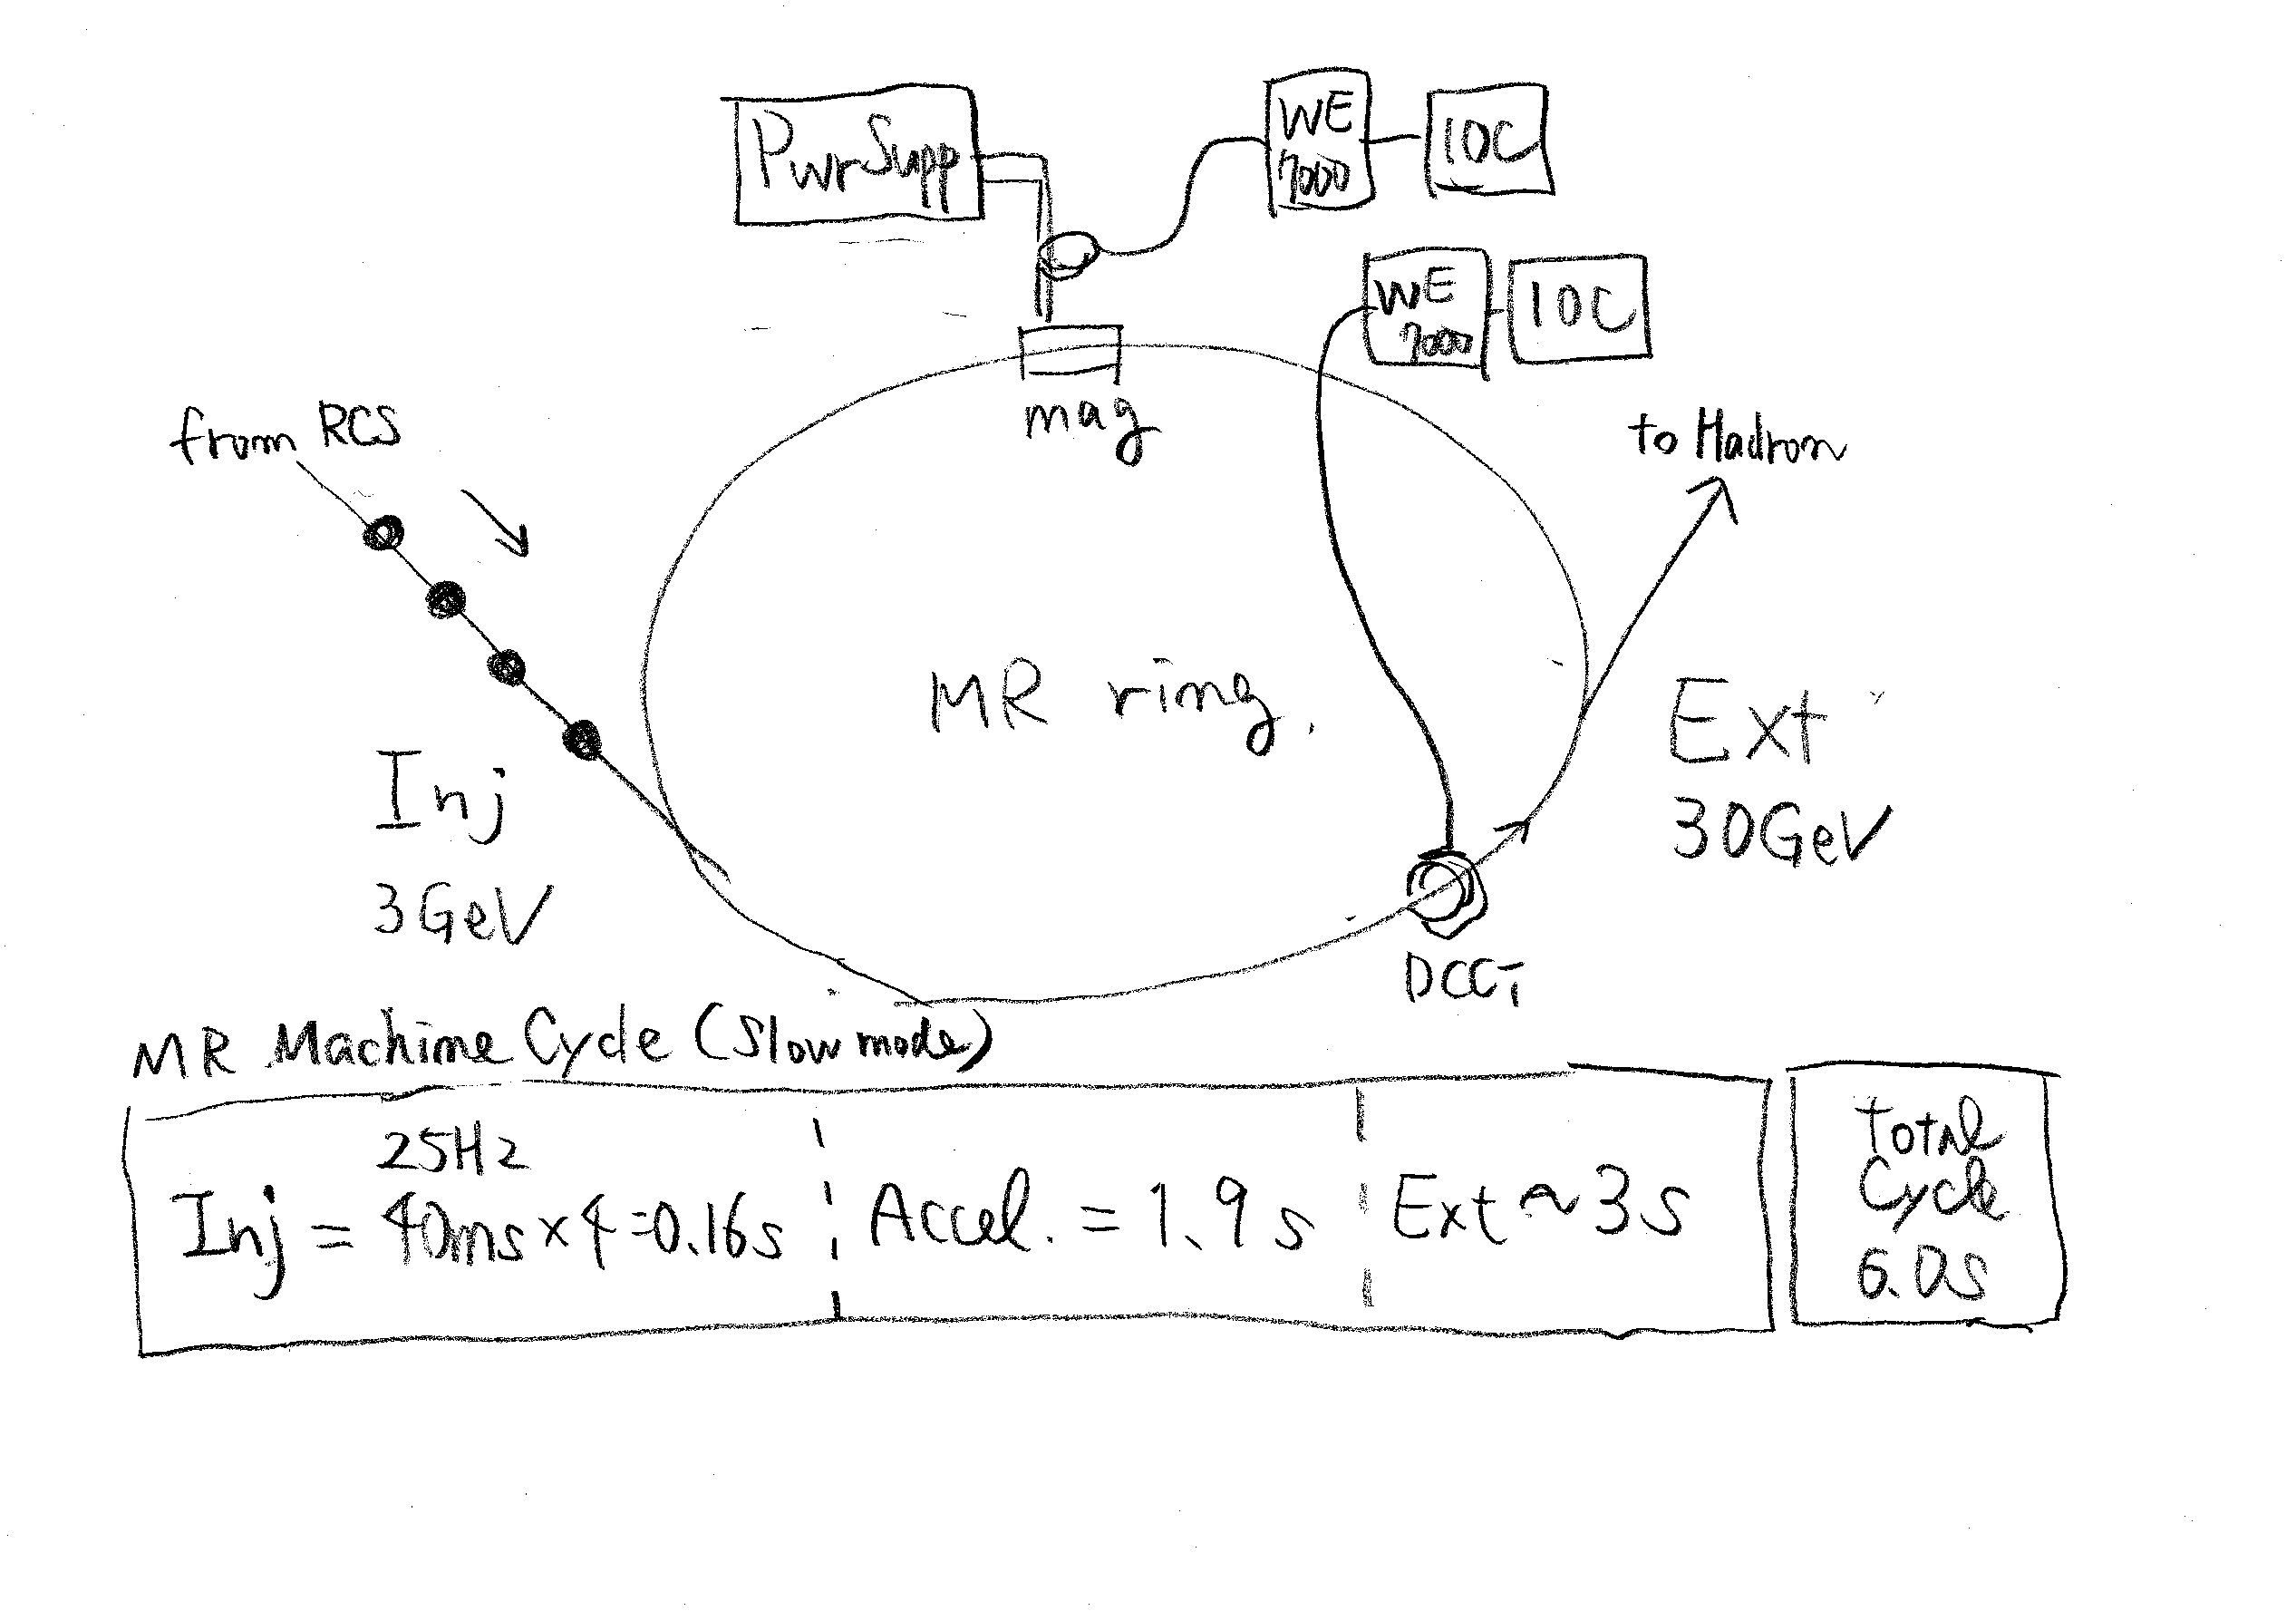 PwrSupp
WE
7000
IOC
WE
7000
IOC
mag
from RCS
to Hadron
MR ring.
Inj
3GeV
Ext
30GeV
DCCT
MR Machine Cycle (Slow mode)
25Hz
Inj = 40ms × 4 = 0.16s
Accel. = 1.9s
Ext ~ 3s
Total
Cycle
6.0s